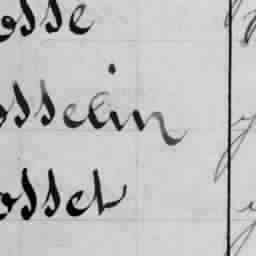 osse
osselin
osset